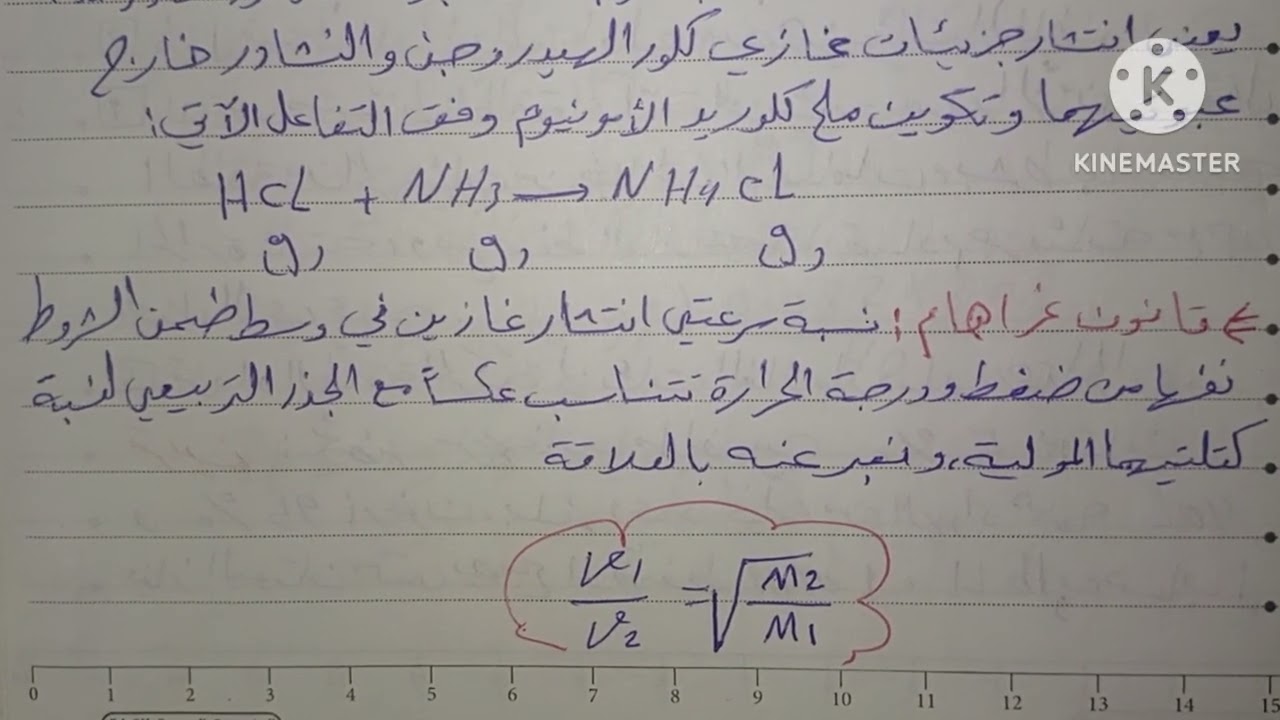 يعني انتشار جزيئات غازي كلور الهيدروجين والنشادر خارج
وتكوين ملح كلوريد الأمونيوم وفق التفاعل الآتي:
HCl + NH3 → NH4Cl
g, g, g,
قانون غراهام: نسبة سرعتي انتشار غازين في وسط ضمن الشروط
نفسها من ضغط ودرجة الحرارة تتناسب عكساً مع الجذر التربيعي لنسبة
كتلتيهما المولية، ونعبر عنه بالعلاقة
v1/v2 = √M2/M1
0 1 2 3 4 5 6 7 8 9 10 11 12 13 14 15
K
KINEMASTER